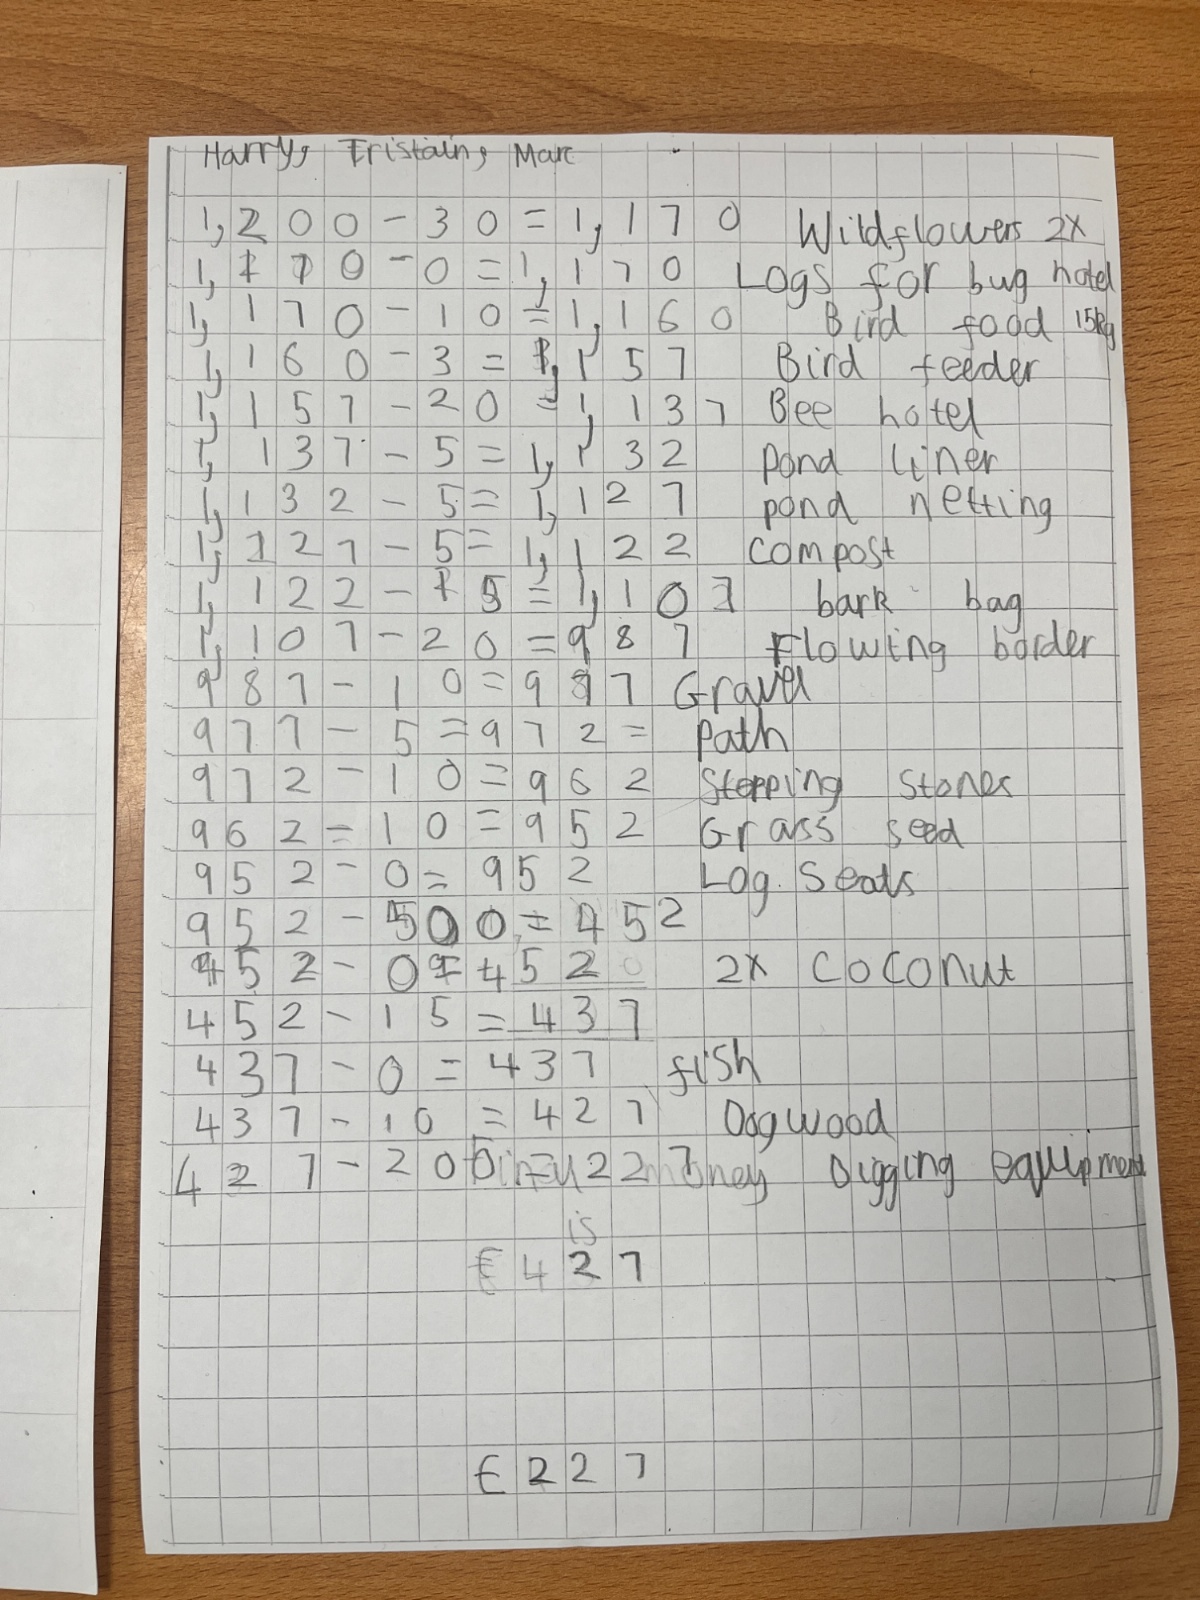 Harry, Tristain, Marc
1,200-30=1,170 Wildflowers 2x
1,170-0=1,170 Logs for bug hotel
1,170-10=1,160 Bird food 15kg
1,160-3=1,157 Bird feeder
1,157-20=1,137 Bee hotel
1,137-5=1,132 pond liner
1,132-5=1,127 pond netting
1,127-5=1,122 compost
1,122-15=1,107 bark bag
1,107-20=987 Flowing border
987-10=977 Gravel
977-5=972= path
972-10=962 Stepping Stones
962=10=952 Grass seed
952-0=952 Log Seats
952-500=452
452-0=452 2x coconut
452-15=437
437-0=437 fish
437-10=427 Dogwood
427-200=227 money Digging equipment
is
€427
€227